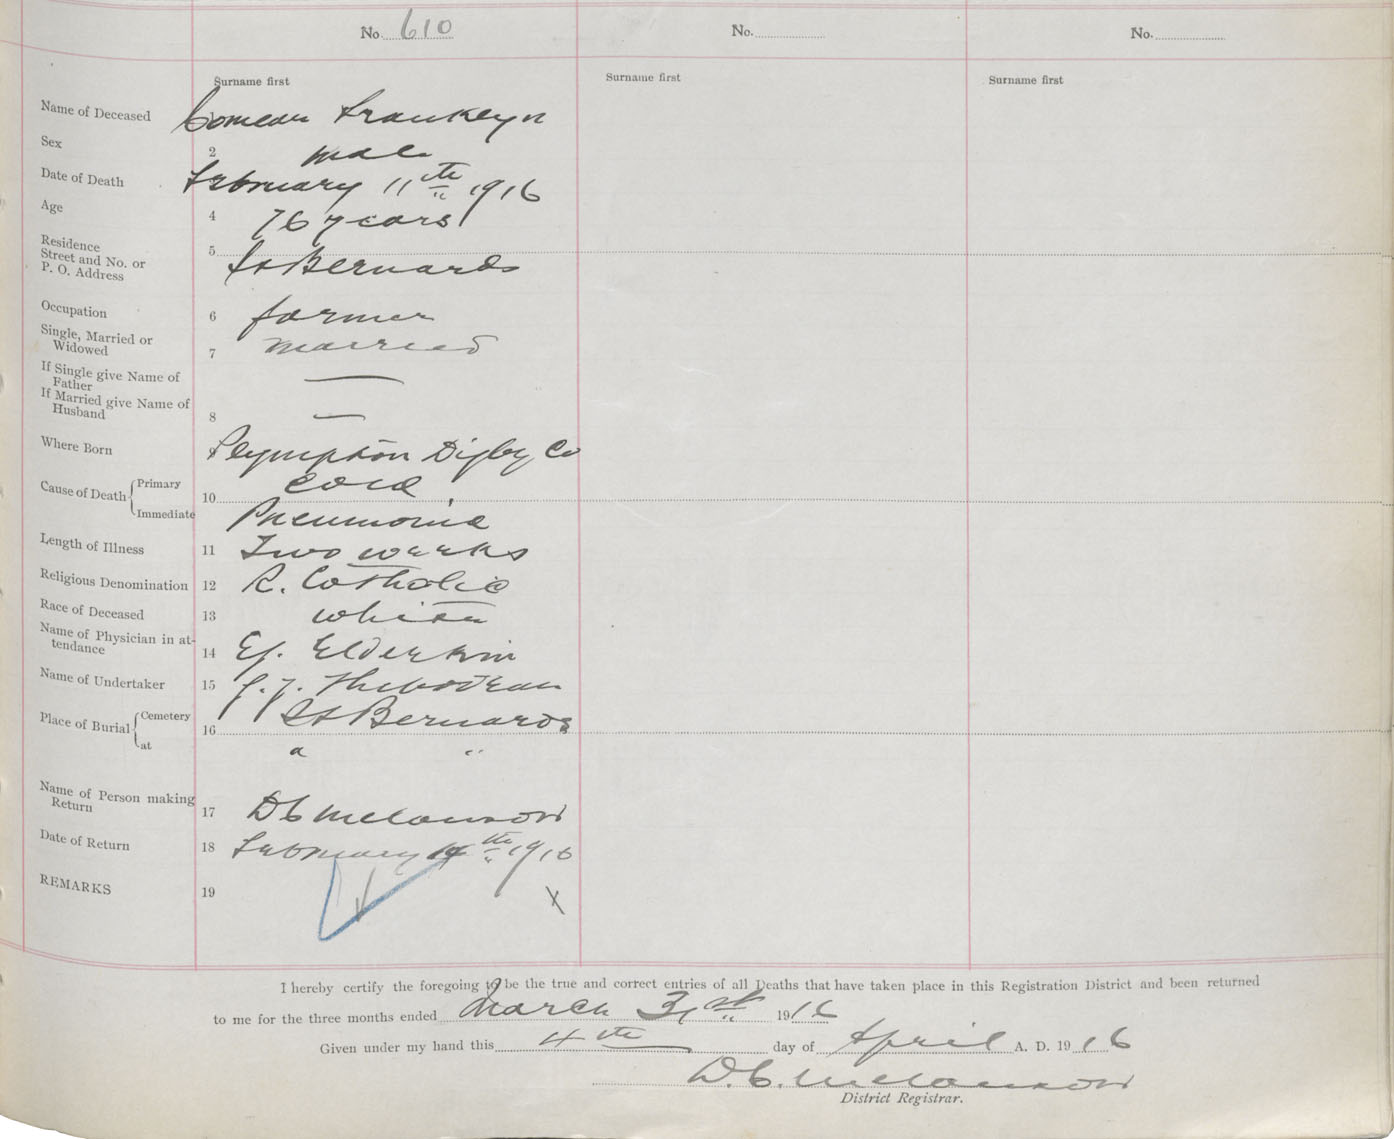 No. 610 No. No.
Surname first Surname first Surname first
Name of Deceased Comeau Franklyn
Sex 2 male
Date of Death February 11th 1916
Age 4 76 years
Residence
Street and No. or
P. O. Address 5 St Bernards
Occupation 6 farmer
Single, Married or
Widowed 7 married
If Single give Name of
Father —
If Married give Name of
Husband 8 —
Where Born 9 Plympton Digby Co
Cause of Death Primary 10 Cold
Immediate Pneumonia
Length of Illness 11 Two weeks
Religious Denomination 12 R. Catholic
Race of Deceased 13 white
Name of Physician in at-
tendance 14 E.J. Elderkin
Name of Undertaker 15 J. J. Thebodeau
Place of Burial Cemetery 16 St Bernards
at " "
Name of Person making
Return 17 D C Melanson
Date of Return 18 February 14th 1916
REMARKS 19 X
I hereby certify the foregoing to be the true and correct entries of all Deaths that have taken place in this Registration District and been returned
to me for the three months ended March 31st 1916
Given under my hand this 4th day of April A. D. 1916
D. C. Melanson
District Registrar.